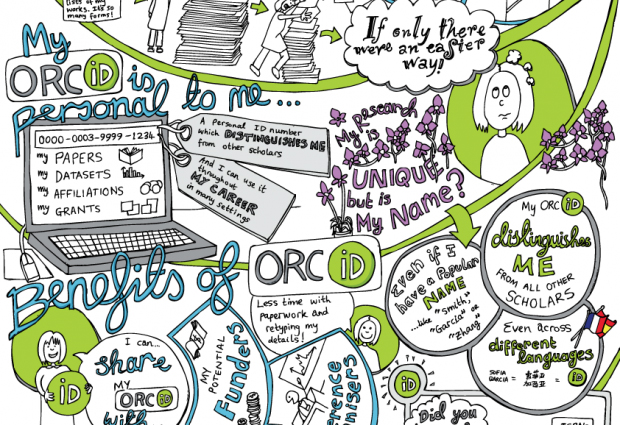 lists of my
works. It's so
many forms!
If only there
were an easier
way!
My
ORCiD is
personal to me...
0000-0003-9999-1234
my PAPERS
my DATASETS
my AFFILIATIONS
my GRANTS
A Personal ID number
which DISTINGUISHES ME
from other scholars
And I can use it
throughout
MY CAREER
in many settings
My research
is
UNIQUE
but is
My Name?
My ORCiD
distinguishes
ME
FROM ALL OTHER
SCHOLARS
Even if I
have a Popular
NAME
...like "Smith",
"Garcia" or
"Zhang"
Even across
different
languages
SOFIA
GARCIA =
= iD
Benefits of
ORCiD
Less time with
paperwork and
retyping my
details!
iD
I can...
share
MY
ORCiD
with
MY
POTENTIAL
Funders
iD
Did you